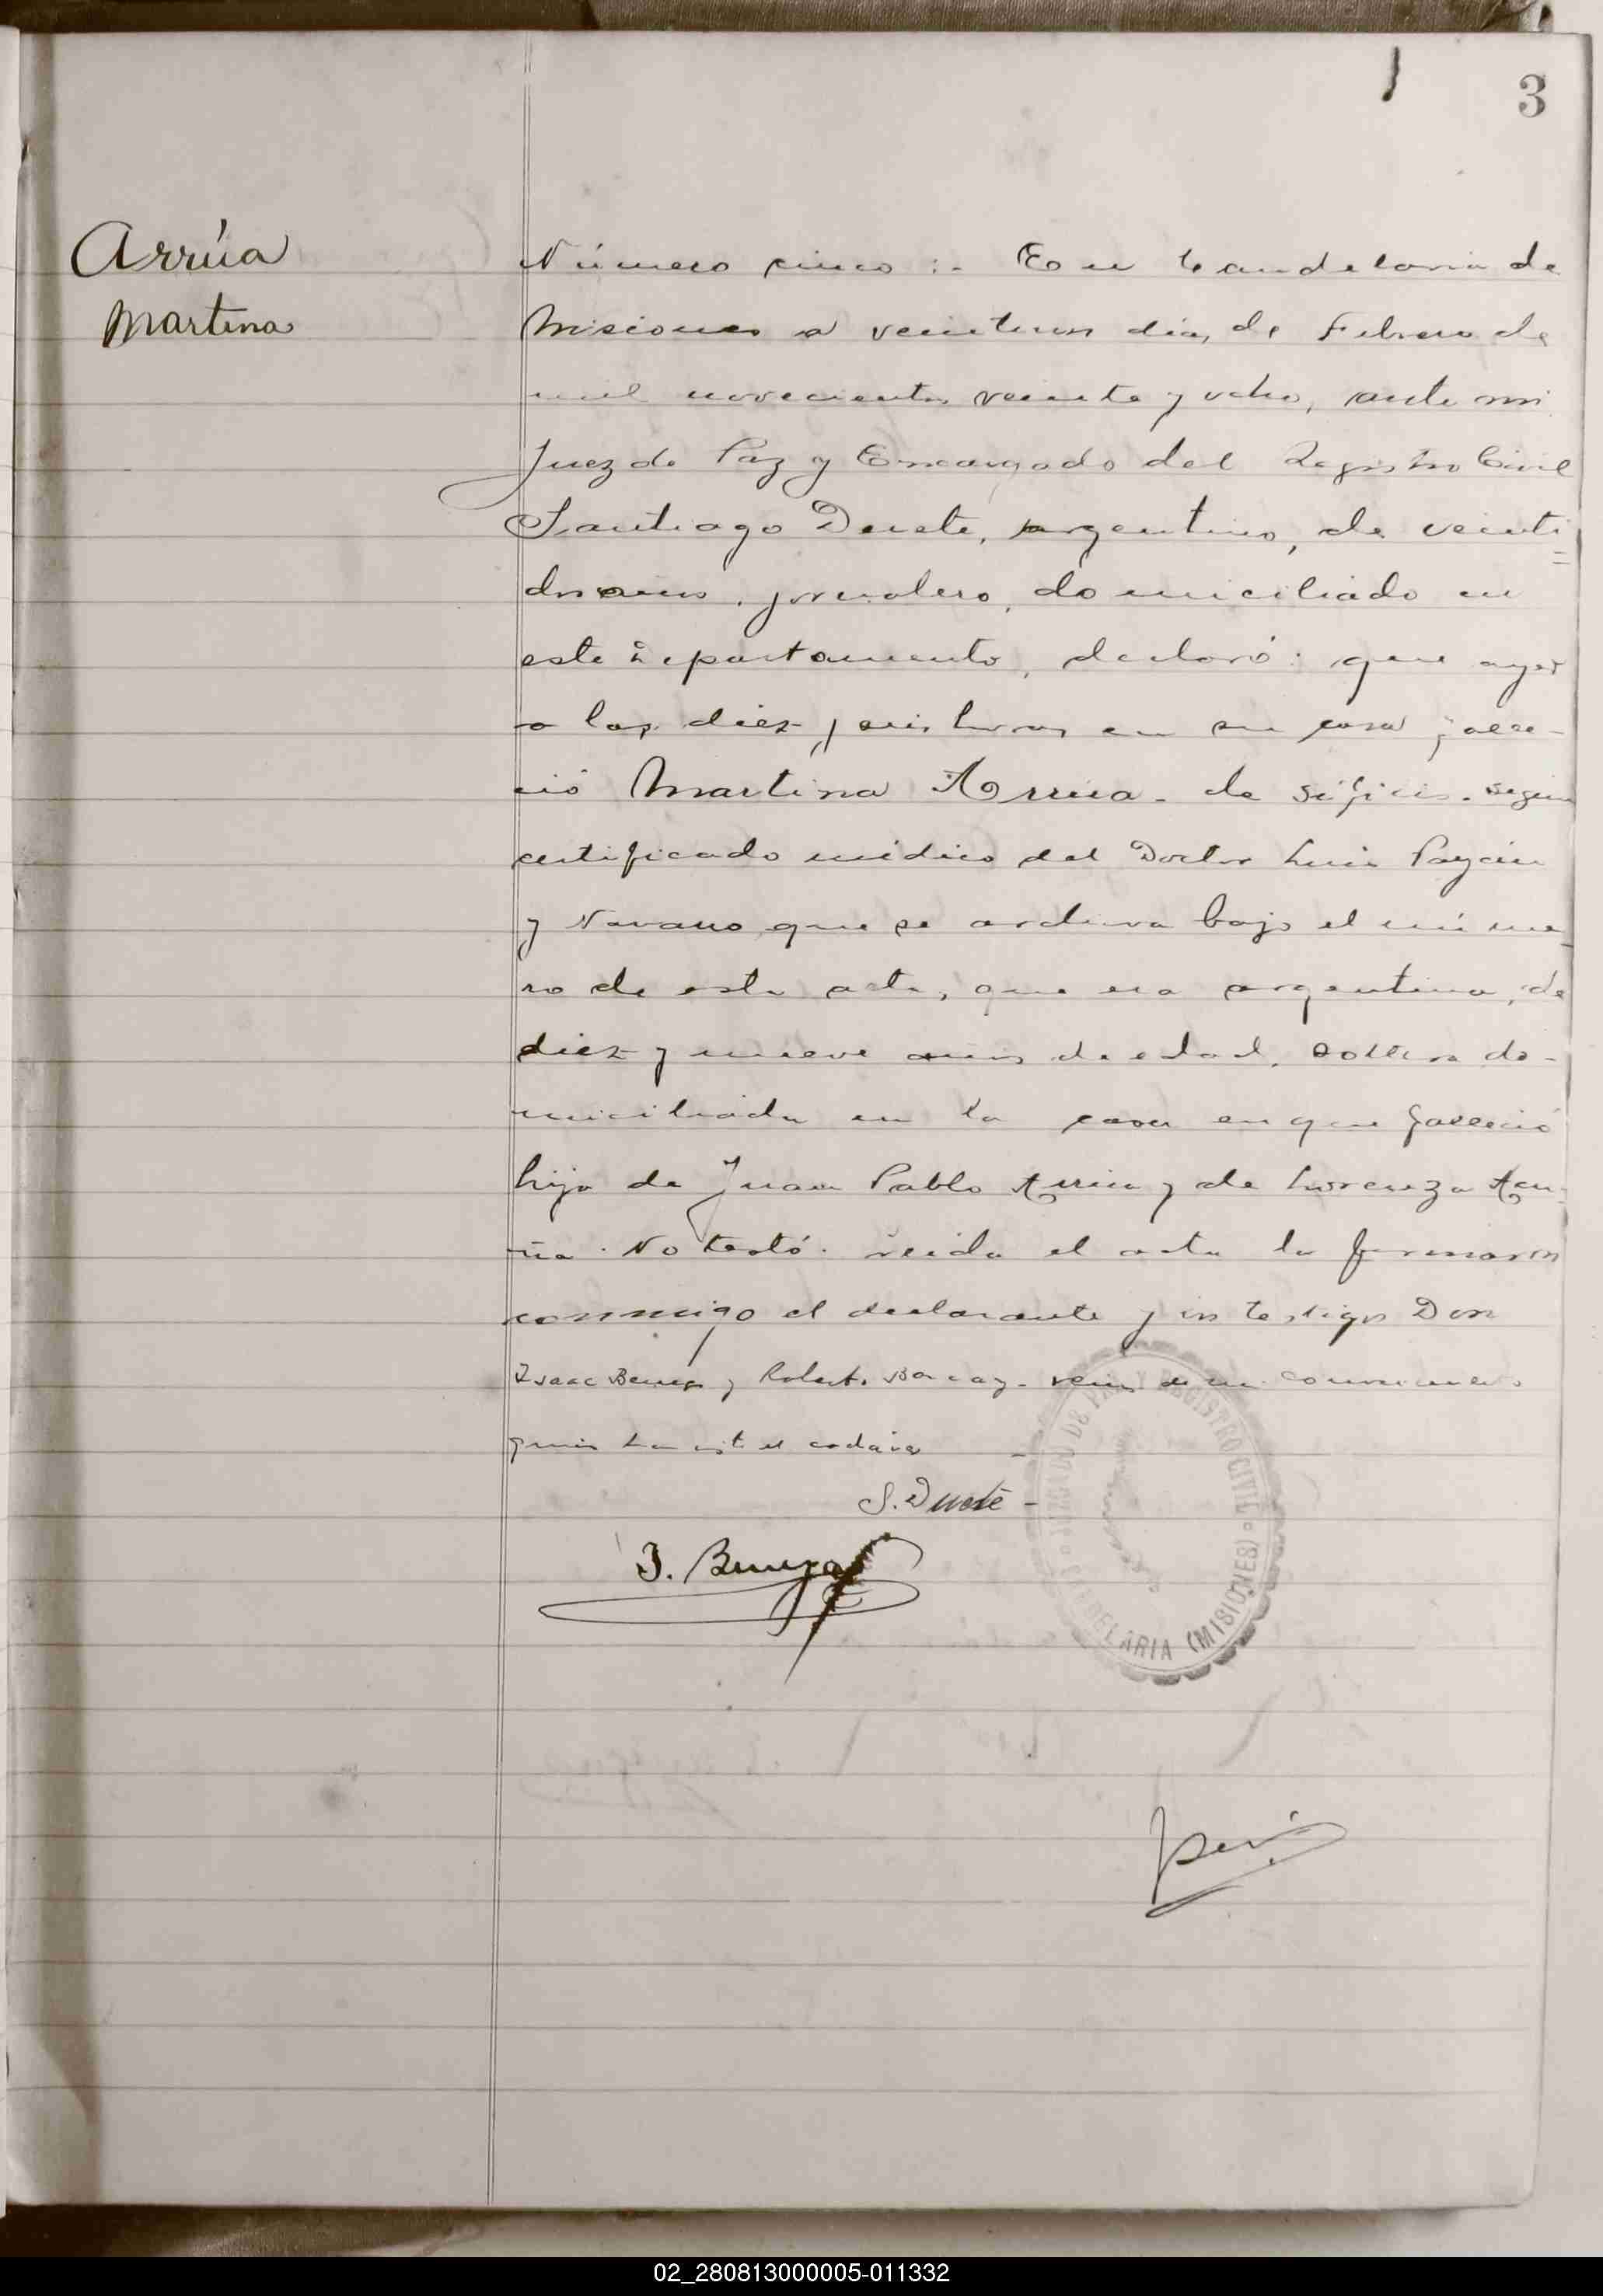 3
Arrúa
Martina
Número cinco :- En Candelaria de
Misiones a veintiun dias de Febrero de
mil novecientos veinte y ocho, ante mi
Juez de Paz y Encargado del Registro Civil
Santiago Duete, argentino, de veinti
dos años, jornalero, domiciliado en
este Departamento, declaró: que ayer
a las diez y seis horas en su casa falle-
ció Martina Arrúa - de sífilis - según
certificado médico del Doctor Luis Payán
y Navarro que se archiva bajo el núme-
ro de esta acta, que era argentina, de
diez y nueve años de edad, soltera do-
miciliada en la casa en que falleció
hija de Juan Pablo Arrúa y de Lorenza Acu-
ña. No testó. Leida el acta la firmaron
conmigo el declarante y los testigos Don
Isaac y Roberto
quienes han visto el cadáver
S. Duete -
JUZGADO DE PAZ Y REGISTRO CIVIL
CANDELARIA (MISIONES)
02_280813000005-011332